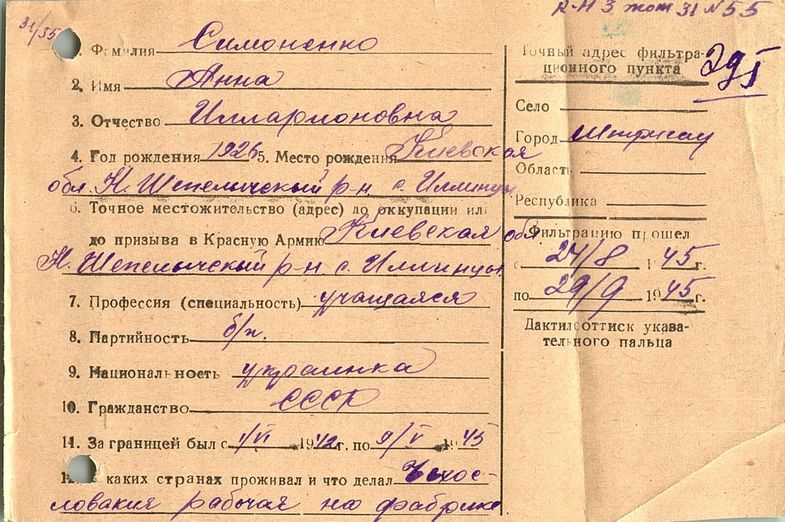 31/55
R-Н 3 том 31 N 55
1. Фамилия Симоненко
2. Имя Анна
3. Отчество Илларионовна
4. Год рождения 1926 5. Место рождения Киевская
обл. Н. Шепелычский р-н с. Иллинцы
6. Точное местожительство (адрес) до оккупации или
до призыва в Красную Армию Киевская обл
Н. Шепелычский р-н с. Илинцы
7. Профессия (специальность) учащаяся
8. Партийность б/п.
9. Национальность украинка
10. Гражданство СССР
11. За границей был с 1/VI 1942 г. по 9/V 1945
каких странах проживал и что делал Чехос-
ловакия рабочая на фабрике
Точный адрес фильтра-
ционного пункта
Село
Город
Область
Республика
Фильтрацию прошел
с 24/8 1945 г.
по 29/9 1945 г.
Дактилоттиск указа-
тельного пальца